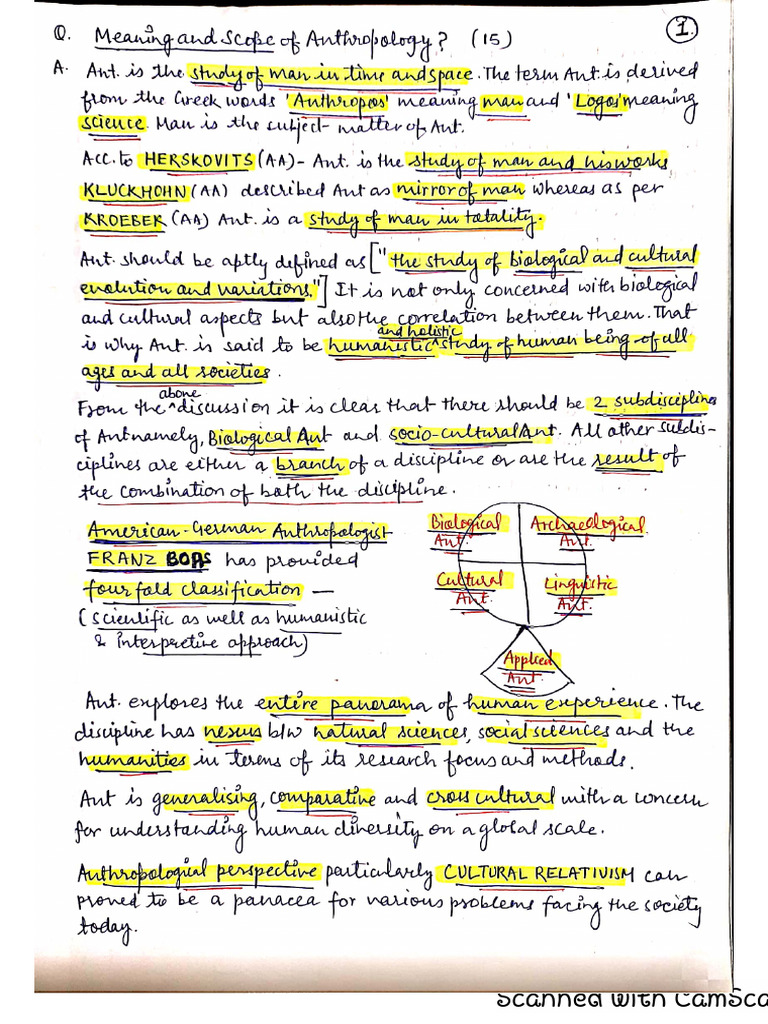 Q. Meaning and Scope of Anthropology? (15)
1.
A. Ant. is the study of man in time and space. The term Ant. is derived
from the Greek words 'Anthropos' meaning man and 'Logos' meaning
science. Man is the subject-matter of Ant.
Acc. to HERSKOVITS (AA) - Ant. is the study of man and his works
KLUCKHOHN (AA) described Ant as mirror of man whereas as per
KROEBER (AA) Ant. is a study of man in totality.
Ant. should be aptly defined as ["the study of biological and cultural
evolution and variations."] It is not only concerned with biological
and cultural aspects but also the correlation between them. That
and holistic
is why Ant. is said to be humanistic ^ study of human being of all
ages and all societies.
above
From the ^ discussion it is clear that there should be 2 subdiscipline
of Ant namely, Biological Ant and socio-cultural Ant. All other subdis-
ciplines are either a branch of a discipline or are the result of
the combination of both the discipline.
American-German Anthropologist
FRANZ BOAS has provided
four fold classification —
(scientific as well as humanistic
& interpretive approach)
Biological Ant.
Archaeological Ant.
Cultural Ant.
Linguistic Ant.
Applied Ant.
Ant. explores the entire panorama of human experience. The
discipline has nexus b/w natural sciences, social sciences and the
humanities in terms of its research focus and methods.
Ant is generalising, comparative and cross cultural with a concern
for understanding human diversity on a global scale.
Anthropological perspective particularly CULTURAL RELATIVISM can
proved to be a panacea for various problems facing the society
today.
Scanned with CamSca